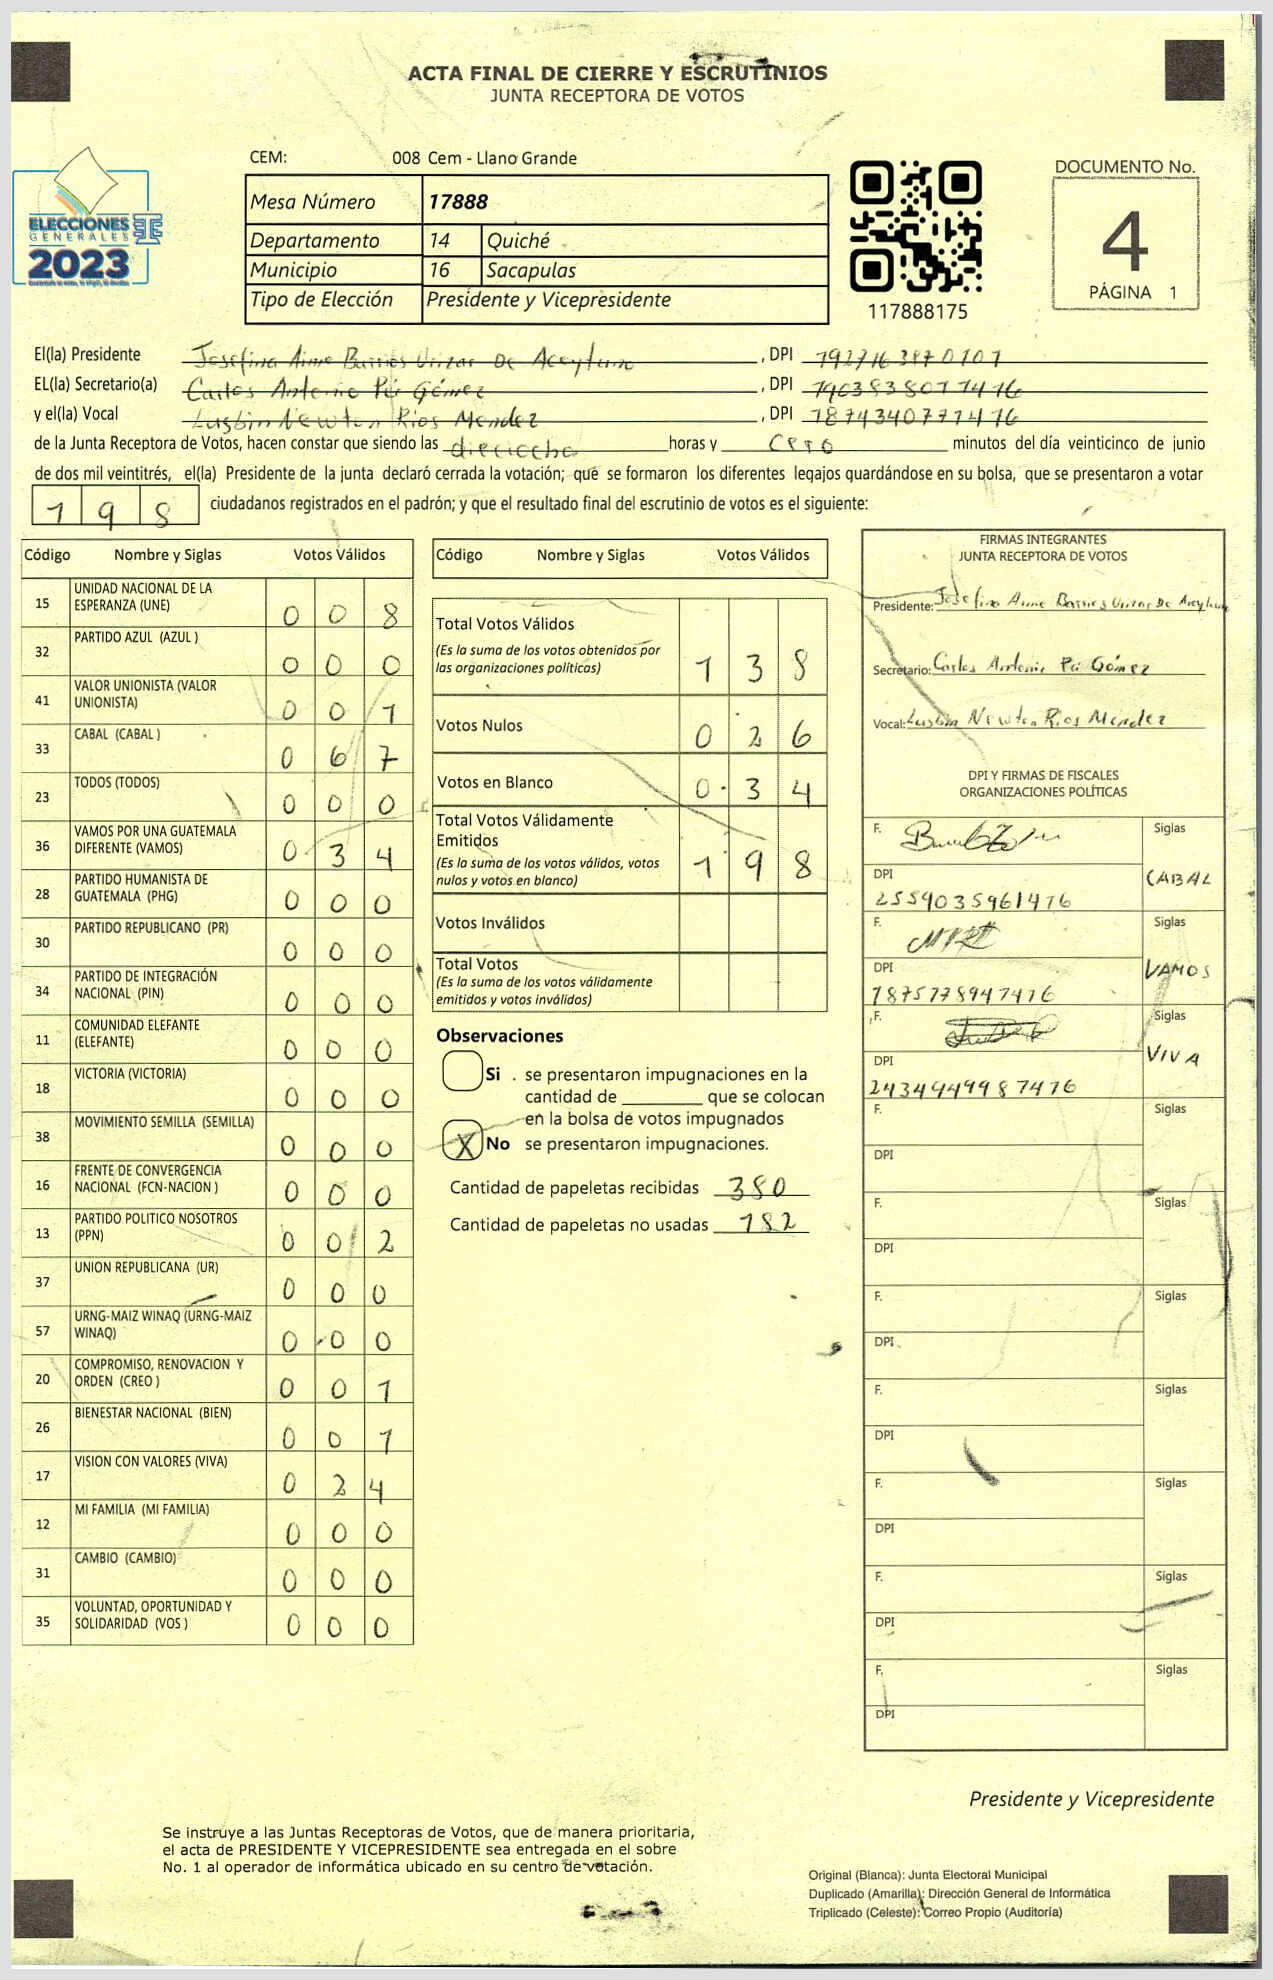 ACTA FINAL DE CIERRE Y ESCRUTINIOS
JUNTA RECEPTORA DE VOTOS
CEM: 008 Cem - Llano Grande
Mesa Número 17888
Departamento 14 Quiché
Municipio 16 Sacapulas
Tipo de Elección Presidente y Vicepresidente
ELECCIONES
GENERALES
2023
117888175
DOCUMENTO No.
4
PÁGINA 1
El(la) Presidente Josefina Aime Barrios Urizar De Aceytuno, DPI
EL(la) Secretario(a) Carlos Antonio Pú Gómez, DPI 1903838071416
y el(la) Vocal Lusbin Newton Rios Mendez, DPI 1874340771416
de la Junta Receptora de Votos, hacen constar que siendo las dieciocho horas y cero minutos del día veinticinco de junio
de dos mil veintitrés, el(la) Presidente de la junta declaró cerrada la votación; que se formaron los diferentes legajos guardándose en su bolsa, que se presentaron a votar
198 ciudadanos registrados en el padrón; y que el resultado final del escrutinio de votos es el siguiente:
Código Nombre y Siglas Votos Válidos
15 UNIDAD NACIONAL DE LA
ESPERANZA (UNE) 0 0 8
32 PARTIDO AZUL (AZUL ) 0 0 0
41 VALOR UNIONISTA (VALOR
UNIONISTA) 0 0 1
33 CABAL (CABAL ) 0 6 7
23 TODOS (TODOS) 0 0 0
36 VAMOS POR UNA GUATEMALA
DIFERENTE (VAMOS) 0 3 4
28 PARTIDO HUMANISTA DE
GUATEMALA (PHG) 0 0 0
30 PARTIDO REPUBLICANO (PR) 0 0 0
34 PARTIDO DE INTEGRACIÓN
NACIONAL (PIN) 0 0 0
11 COMUNIDAD ELEFANTE
(ELEFANTE) 0 0 0
18 VICTORIA (VICTORIA) 0 0 0
38 MOVIMIENTO SEMILLA (SEMILLA) 0 0 0
16 FRENTE DE CONVERGENCIA
NACIONAL (FCN-NACION ) 0 0 0
13 PARTIDO POLITICO NOSOTROS
(PPN) 0 0 2
37 UNION REPUBLICANA (UR) 0 0 0
57 URNG-MAIZ WINAQ (URNG-MAIZ
WINAQ) 0 0 0
20 COMPROMISO, RENOVACION Y
ORDEN (CREO ) 0 0 1
26 BIENESTAR NACIONAL (BIEN) 0 0 1
17 VISION CON VALORES (VIVA) 0 2 4
12 MI FAMILIA (MI FAMILIA) 0 0 0
31 CAMBIO (CAMBIO) 0 0 0
35 VOLUNTAD, OPORTUNIDAD Y
SOLIDARIDAD (VOS ) 0 0 0
Código Nombre y Siglas Votos Válidos
Total Votos Válidos
(Es la suma de los votos obtenidos por
las organizaciones políticas) 1 3 8
Votos Nulos 0 2 6
Votos en Blanco 0 3 4
Total Votos Válidamente
Emitidos
(Es la suma de los votos válidos, votos
nulos y votos en blanco) 1 9 8
Votos Inválidos
Total Votos
(Es la suma de los votos válidamente
emitidos y votos inválidos)
Observaciones
Si . se presentaron impugnaciones en la
cantidad de ________ que se colocan
en la bolsa de votos impugnados
X No se presentaron impugnaciones.
Cantidad de papeletas recibidas 380
Cantidad de papeletas no usadas 182
FIRMAS INTEGRANTES
JUNTA RECEPTORA DE VOTOS
Presidente: Josefina Aime Barrios Urizar De Aceytuno
Secretario: Carlos Antonio Pú Gómez
Vocal: Lusbin Newton Rios Mendez
DPI Y FIRMAS DE FISCALES
ORGANIZACIONES POLÍTICAS
F. Siglas
CABAL
DPI
2559035961416
F. Siglas
VAMOS
DPI
1875778947416
F. Siglas
VIVA
DPI
2434949987416
F. Siglas
DPI
F. Siglas
DPI
F. Siglas
DPI
F. Siglas
DPI
F. Siglas
DPI
F. Siglas
DPI
F. Siglas
DPI
Presidente y Vicepresidente
Se instruye a las Juntas Receptoras de Votos, que de manera prioritaria,
el acta de PRESIDENTE Y VICEPRESIDENTE sea entregada en el sobre
No. 1 al operador de informática ubicado en su centro de votación.
Original (Blanca): Junta Electoral Municipal
Duplicado (Amarilla): Dirección General de Informática
Triplicado (Celeste): Correo Propio (Auditoría)